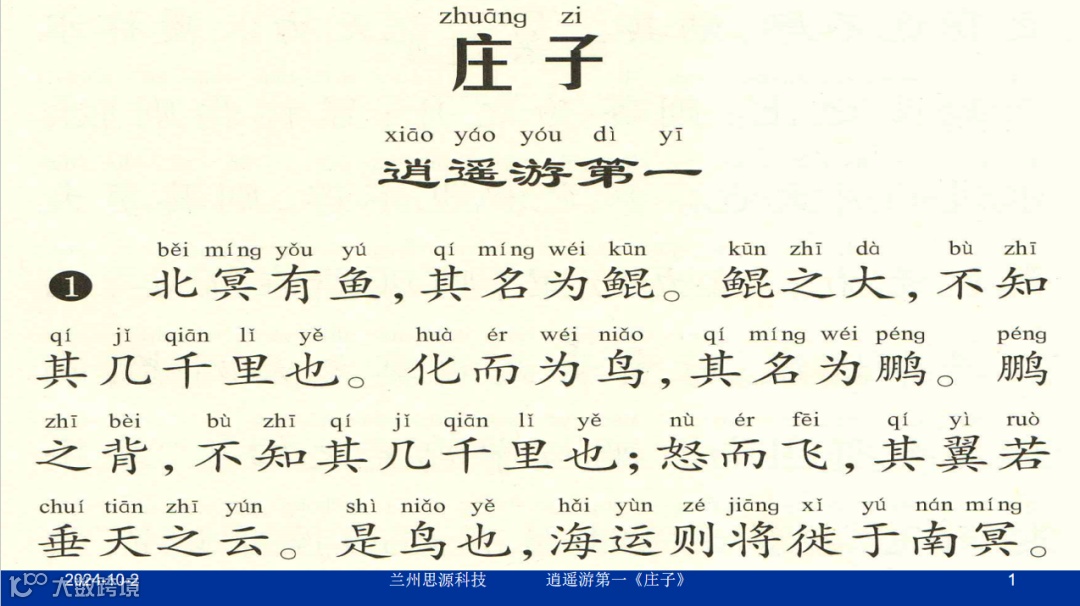 zhuāng zi
庄子
xiāo yáo yóu dì yī
逍遥游第一
běi míng yǒu yú qí míng wéi kūn kūn zhī dà bù zhī
❶ 北冥有鱼，其名为鲲。鲲之大，不知
qí jǐ qiān lǐ yě huà ér wéi niǎo qí míng wéi péng péng
其几千里也。化而为鸟，其名为鹏。鹏
zhī bèi bù zhī qí jǐ qiān lǐ yě nù ér fēi qí yì ruò
之背，不知其几千里也；怒而飞，其翼若
chuí tiān zhī yún shì niǎo yě hǎi yùn zé jiāng xǐ yú nán míng
垂天之云。是鸟也，海运则将徙于南冥。
2024-10-2 兰州思源科技 逍遥游第一《庄子》 1
大数跨境